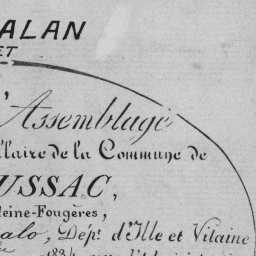 ALAN
ET
d'Assemblage
llaire de la Commune de
USSAC,
leine-Fougères,
alo, Dépt d'Ille et Vilaine
1834